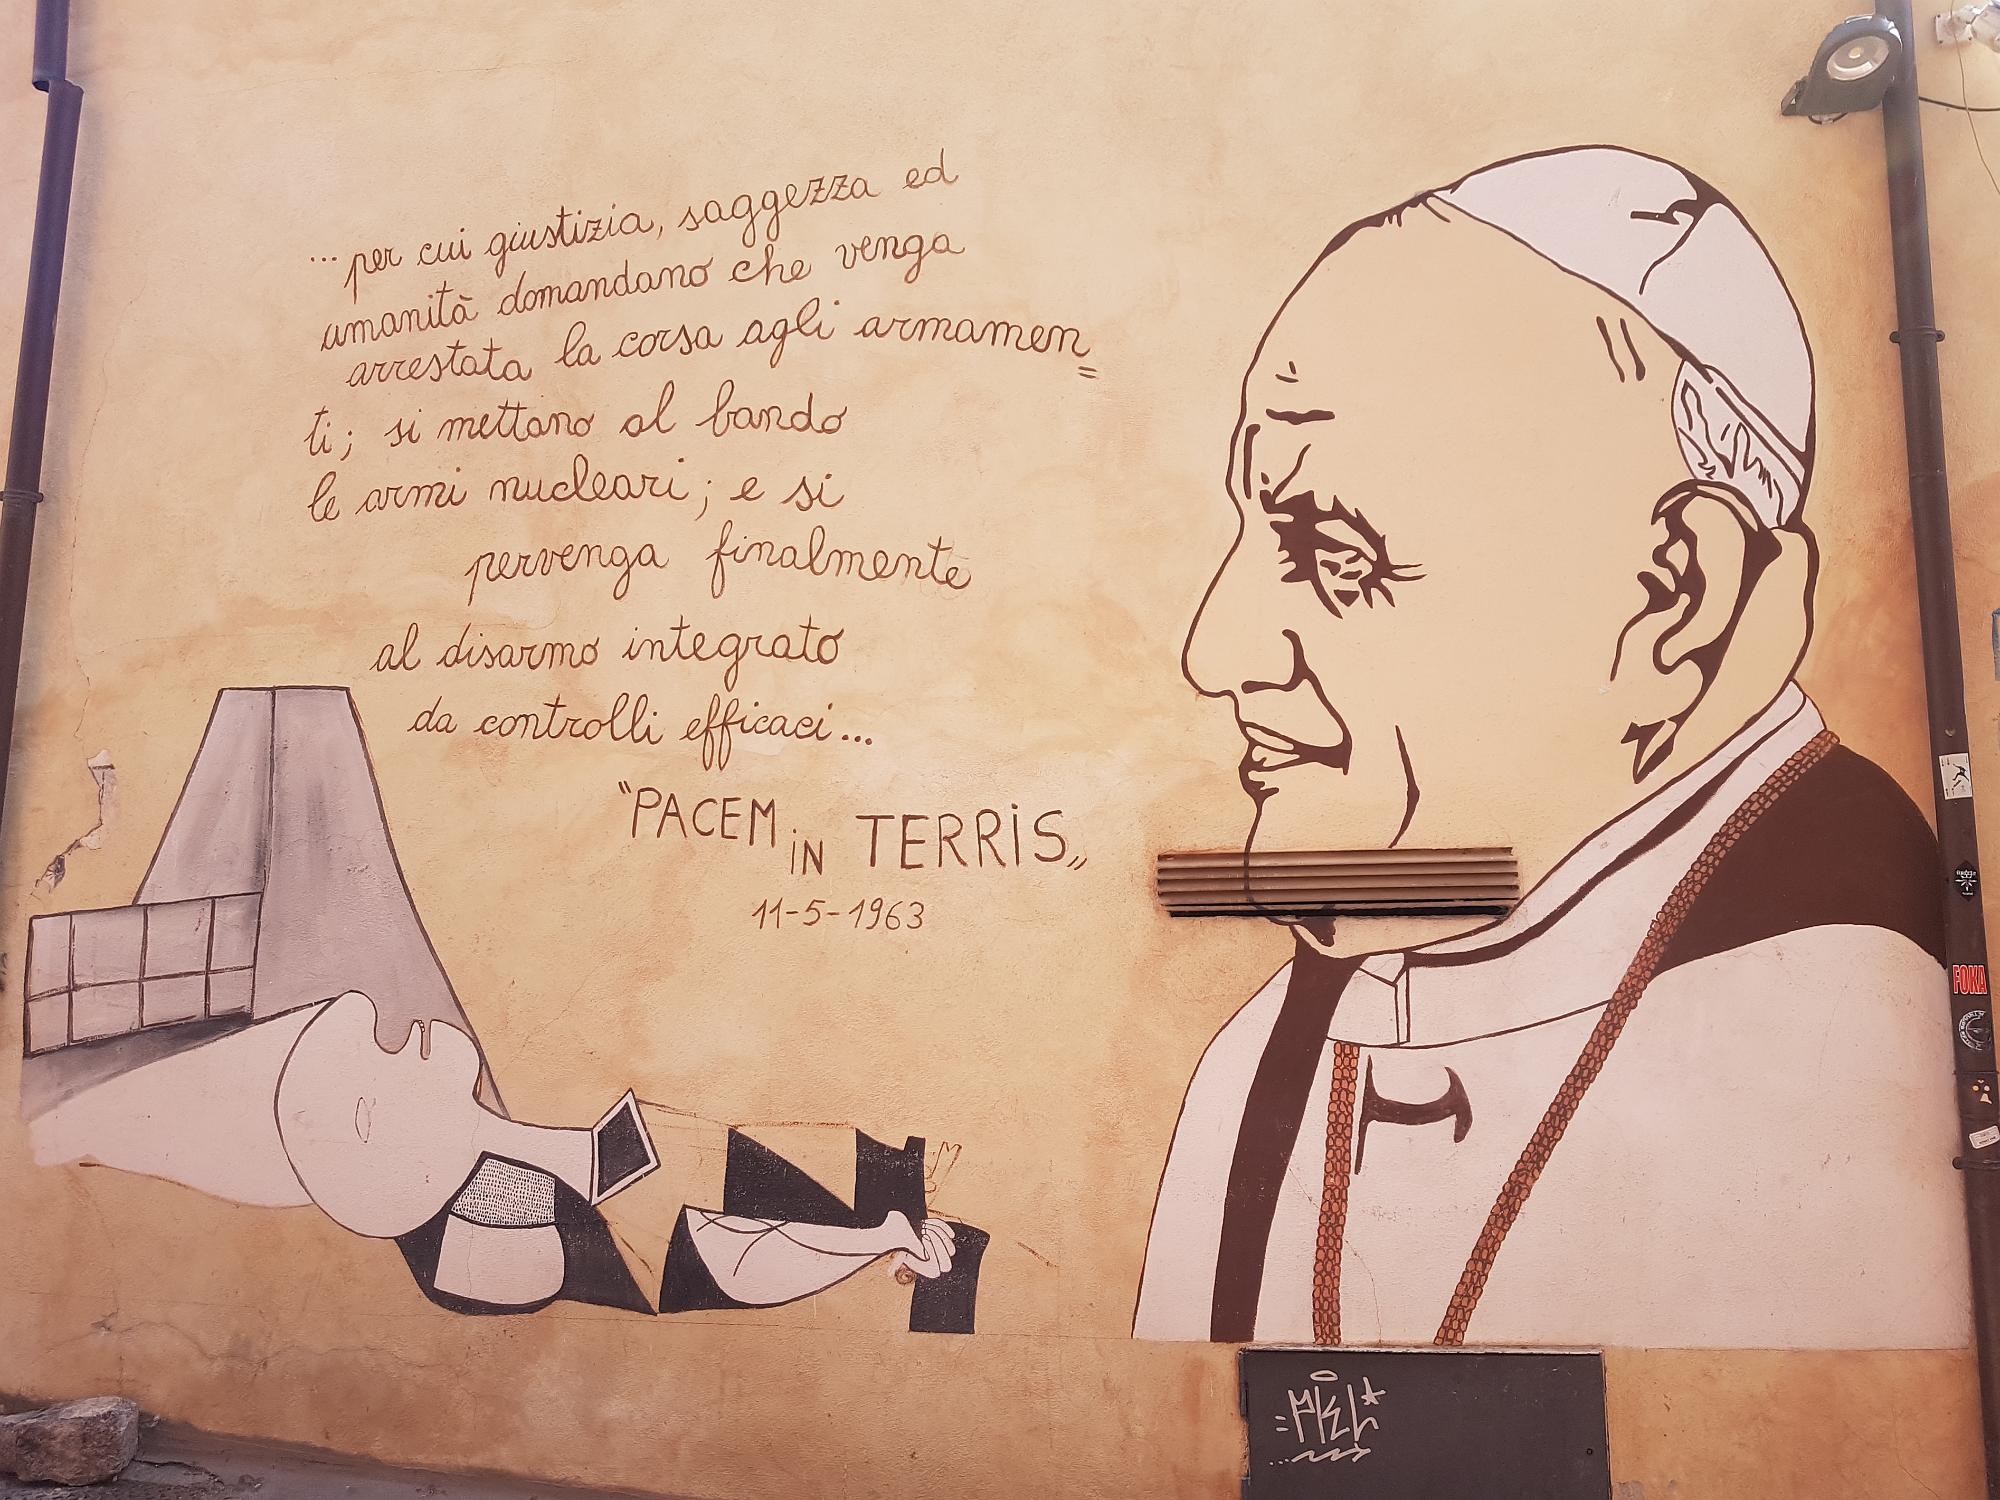 ... per cui giustizia, saggezza ed
umanità domandano che venga
arrestata la corsa agli armamen=
ti; si mettano al bando
le armi nucleari; e si
pervenga finalmente
al disarmo integrato
da controlli efficaci...
"PACEM iN TERRiS„
11-5-1963
FOKA